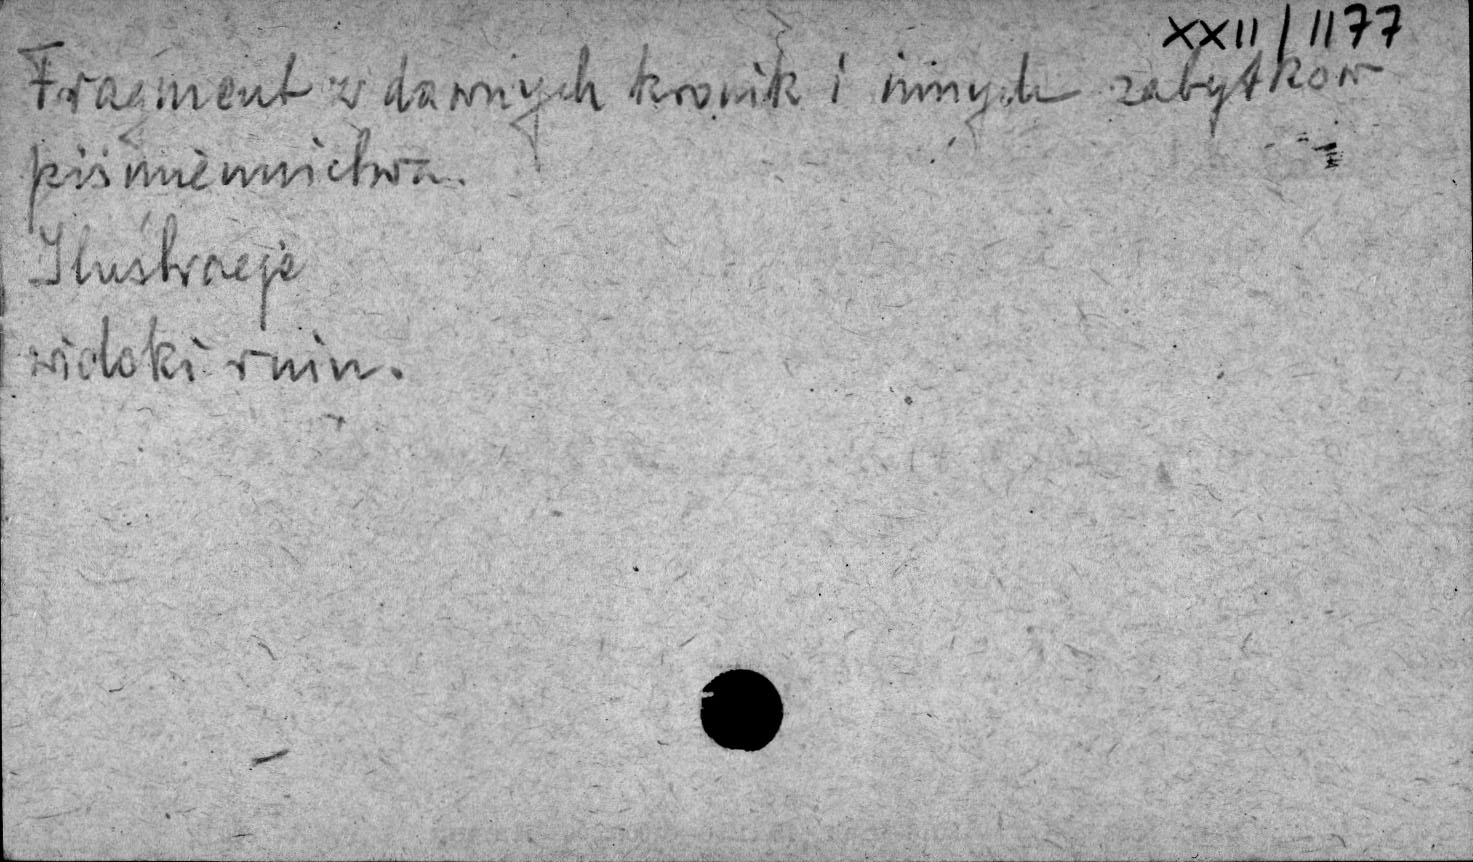 XXII/1177
Fragment z dawnych kronik i innych zabytków
piśmiennictwa.
Ilustracje
widoki ruin.